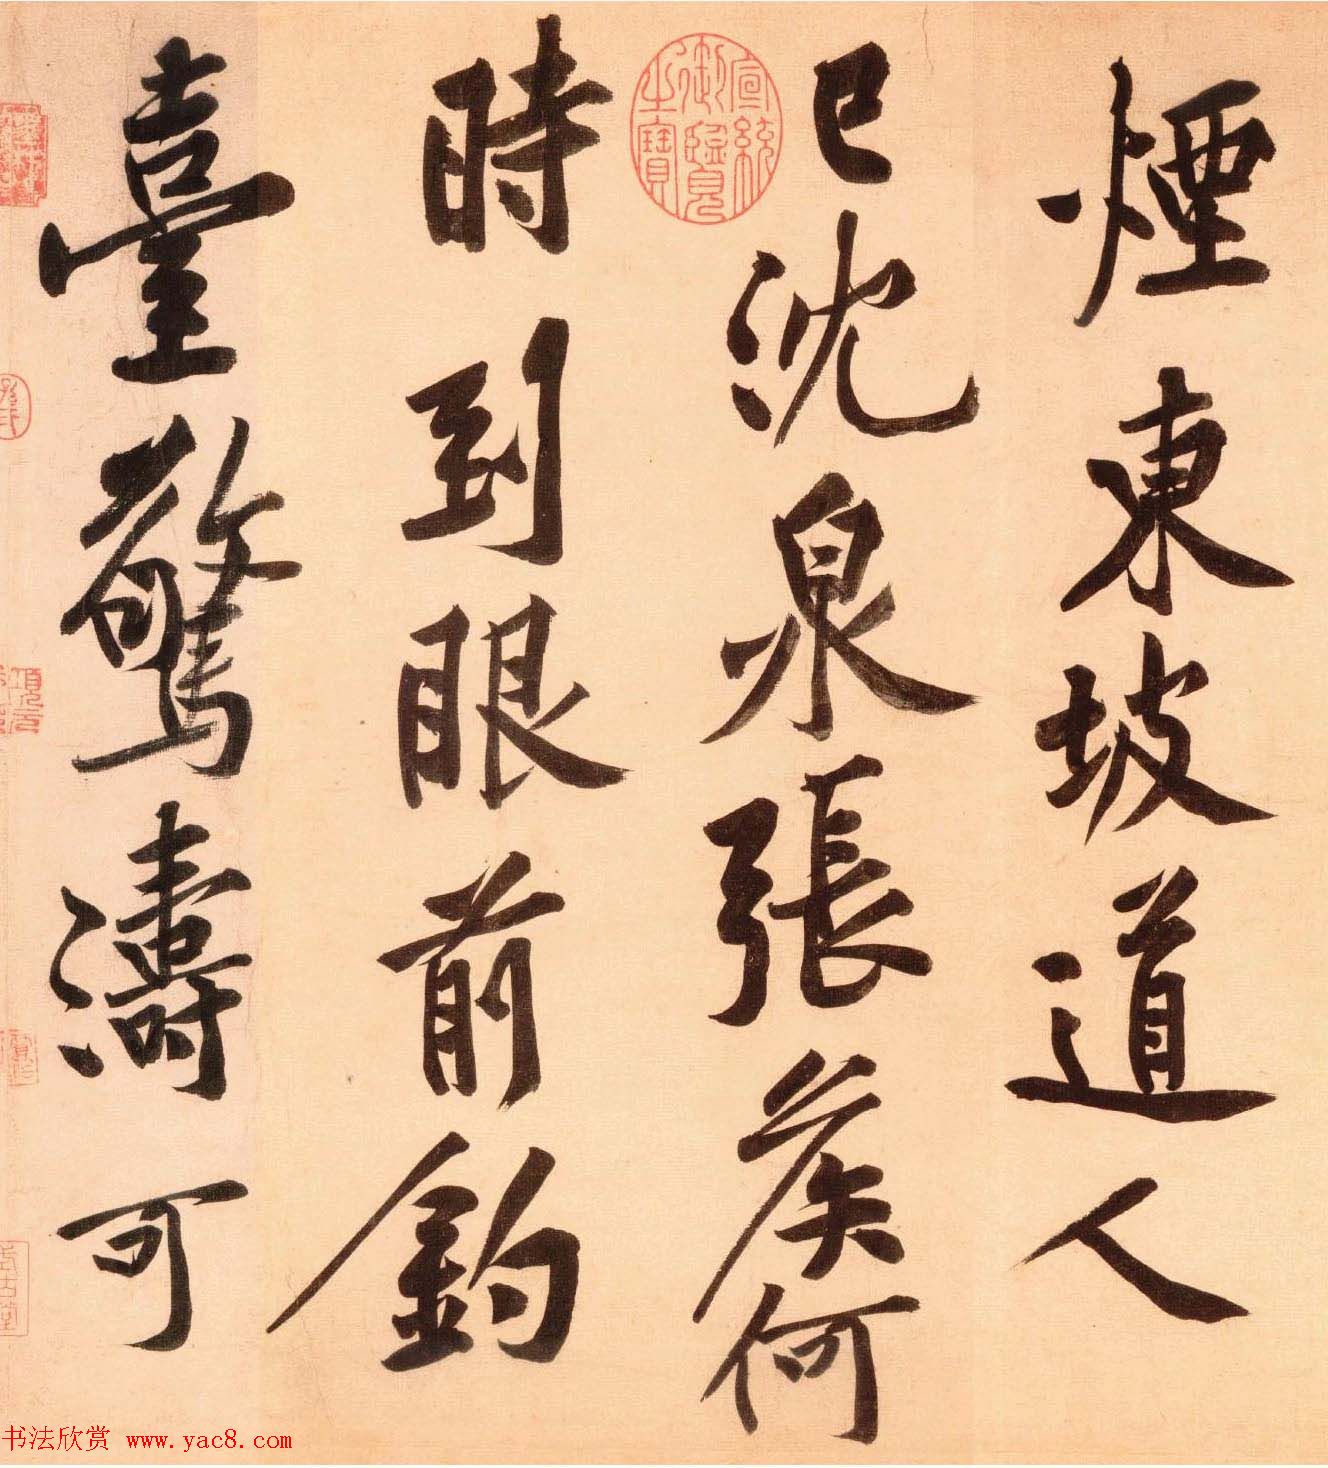 煙東坡道人
已沈泉張矦何
時到眼前釣
臺驚濤可
宣統御覽之寶
书法欣赏 www.yac8.com